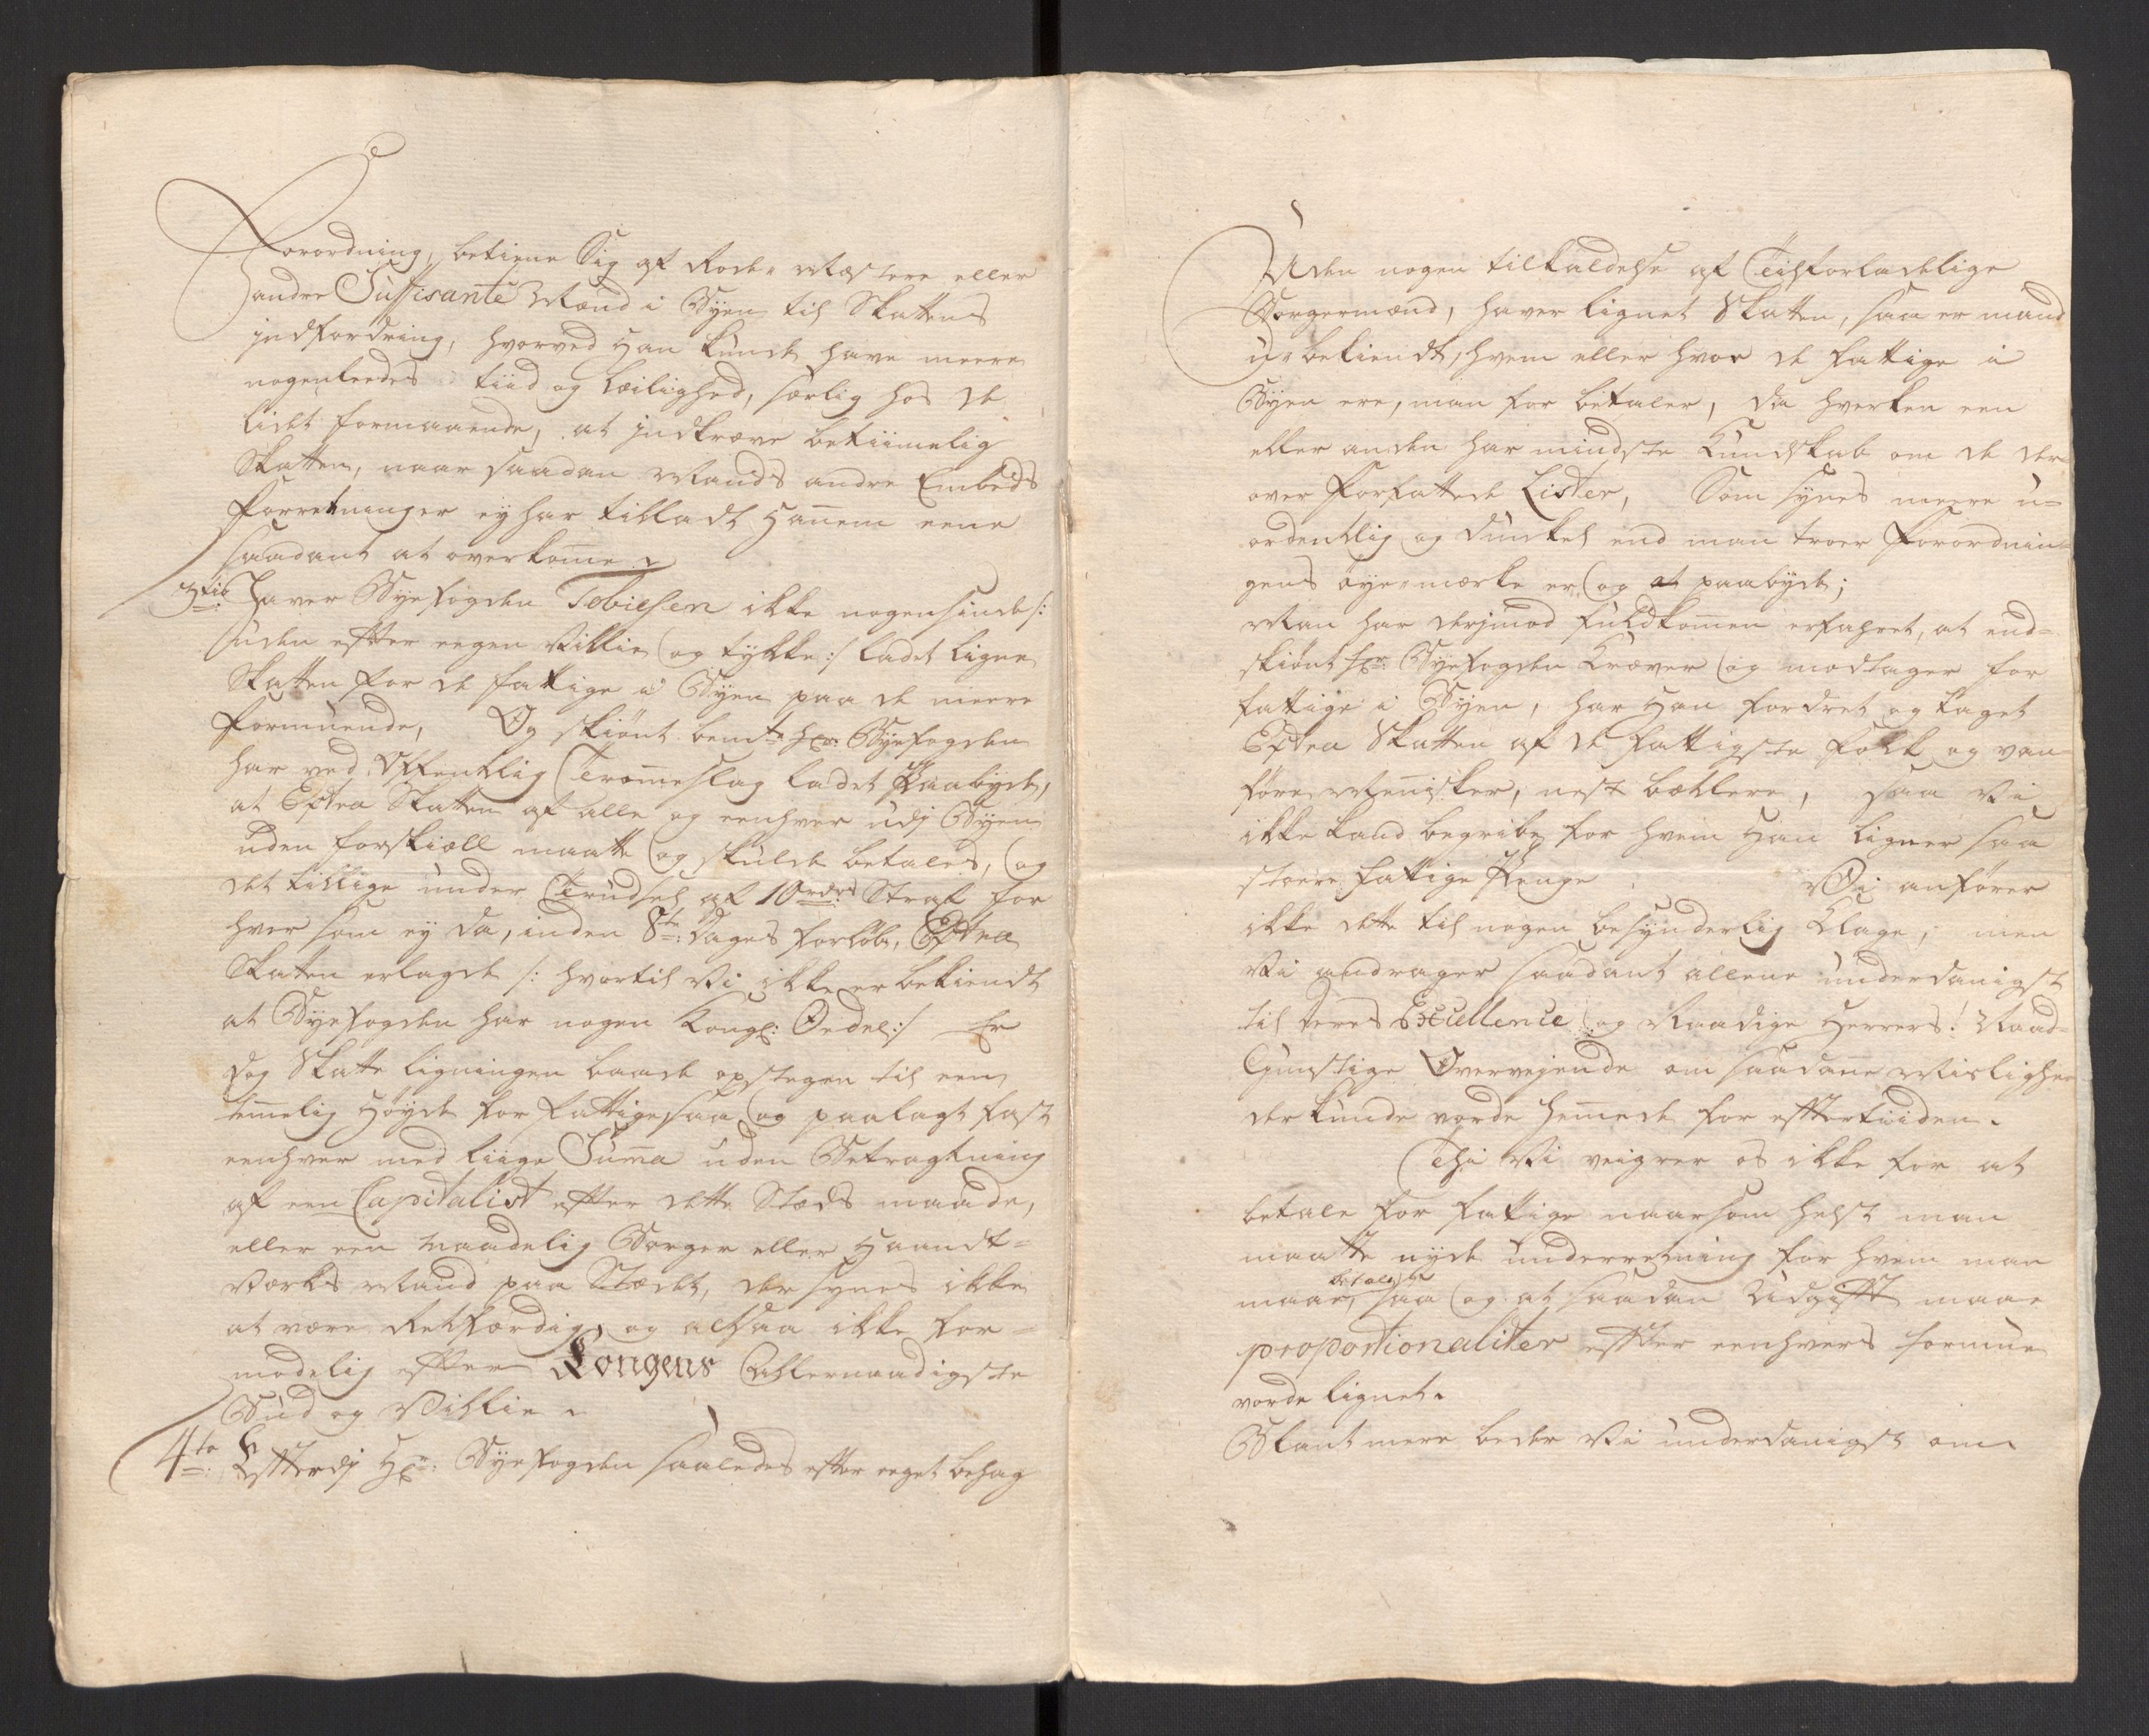 Forordning, betiene Sig af Rode- Mæstere eller
andre Suffisante Mænd i Byen til Skattens
jndfordring, hvorved Han kunde have meere
nogenleedes tiid og Leilighed, særlig hos de
lidet formaaende, at jndkræve betiimelig
Skatten, naar saadan Mands andre Embeds
Forretninger ey har tilladt Hañem eene
saadant at overkom̃e.
3tie Haver Byefogden Tobiesen ikke nogensinde /:
uden efter eegen Villie og tykke :/ ladet ligne
Skatten for de fattige i Byen paa de meere
formuende, Og skiønt bemte Hr: Byefogden
har ved Offentlig Trom̃eslag ladet Paabyde,
at Extra Skatten af alle og eenhver udj Byen
uden forskiæll maatte og skulde betales, og
det tillige under Trudsel af 10 rdrs Straf for
hver som ey da, inden 8te Dages forløb, Extra
Skatten erlagde /: hvortil Vi ikke er bekiendt
at Byefogden har nogen Kongl: Ordre :/ Er
dog Skatte ligningen baade opstegen til een
tem̃elig Høyde for Fattige saa og paalagt fast
eenhver med liige Sum̃a uden Betragtning
af een Capitalist efter dette Stæds maade,
eller een maadelig Borger eller Haandt=
Værks Mand paa Stædet, der synes ikke
at være Retfærdig, og altsaa ikke for=
modelig efter Kongens Allernaadigste
Bud og Villie.
4to: Efterdj Hr: Byefogden saaledes efter eeget behag
Uden nogen tilkaldelse af Tilforladelige
Borgermænd, haver lignet Skatten, saa er mand
u-bekiendt, hvem eller hvor de fattige i
Byen ere, man for betaler, da hverken een
eller anden har mindste Kundskab om de der=
over Forfattede Lister, Som synes meere u=
ordentlig og dunkel end man troer Forordnin=
gens øye-mærke er, og at paabyde;
Man har derjmod fuldkom̃en erfahret, at end=
skiønt Hr: Byefogden Kræver og modtager for
fattige i Byen, har Han fordret og taget
Extra Skatten af de fattigste Folk og van=
føre Meñisker, nest betlere, saa Vi
ikke kand begribe for hvem Han ligner saa
stoere fattige Penge. Vi anfører
ikke dette til nogen besynderlig Klage, men
Vi andrager saadant allene underdanigst
til Deres Excellence og Naadige Herrers! Naad=
Gunstige Overvejende om saadañe Mislighe=
der kunde vorde hem̃ede for effterdtiden.
Thi Vi veigrer os ikke for at
betale for fattige naarsom helst man
maatte nyde underretning for hvem man
maae betale, saa og at saadan Udgifft maae
proportionaliter effter eenhvers formue
vorde lignet.
Blant mere beder Vi underdanigst om